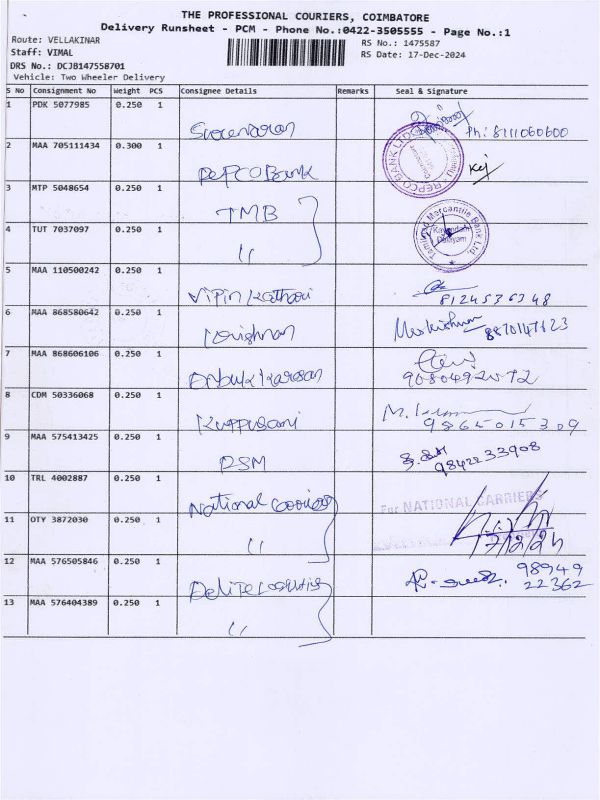 THE PROFESSIONAL COURIERS, COIMBATORE
Delivery Runsheet - PCM - Phone No.:0422-3505555 - Page No.:1
Route: VELLAKINAR
RS No.: 1475587
Staff: VIMAL
RS Date: 17-Dec-2024
DRS No.: DCJB147558701
Vehicle: Two Wheeler Delivery
S No Consignment No Weight PCS Consignee Details Remarks Seal & Signature
1 PDK 5077985 0.250 1 Ph: 8111060600
2 MAA 705111434 0.300 1 REPCO Bank
3 MTP 5048654 0.250 1 TMB
4 TUT 7037097 0.250 1 "
5 MAA 110500242 0.250 1 Vipin Kothari
6 MAA 868580642 0.250 1 Krishnan
7 MAA 868606106 0.250 1
8 CDM 50336068 0.250 1 Kuppusami
9 MAA 575413425 0.250 1 9842233908
10 TRL 4002887 0.250 1 National
For NATIONAL CARRIERS
11 OTY 3872030 0.250 1 "
17/12/24
12 MAA 576505846 0.250 1 98949
22362
13 MAA 576404389 0.250 1 "